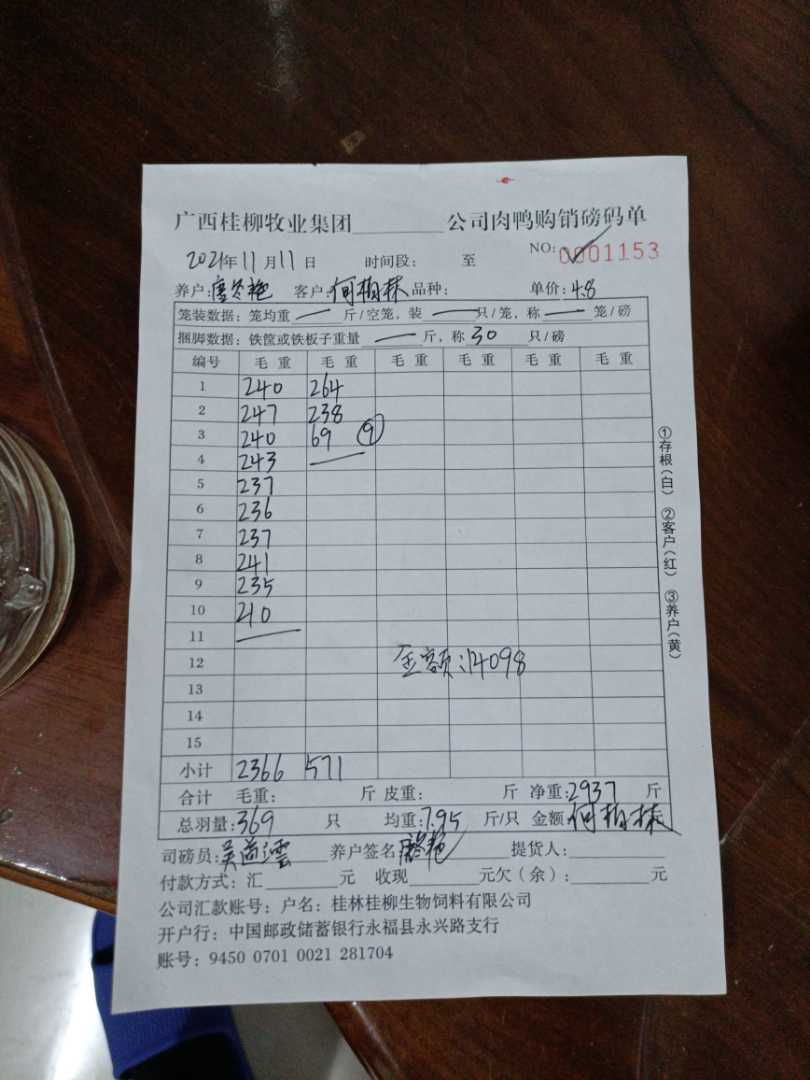 广西桂柳牧业集团________公司肉鸭购销磅码单
2021年11月11日 时间段: 至 NO: 0001153
养户:唐冬艳 客户:何柏林 品种: 单价:4.8
笼装数据: 笼均重 — 斤/空笼, 装 — 只/笼, 称 — 笼/磅
捆脚数据: 铁筐或铁板子重量 — 斤, 称 30 只/磅
编号 毛重 毛重 毛重 毛重 毛重 毛重
1 240 264
2 247 238
3 240 69 ⑨
4 243 —
5 237
6 236
7 237
8 241
9 235
10 210
11 —
12 金额:14098
13
14
15
小计 2366 571
合计 毛重: 斤 皮重: 斤 净重:2937 斤
总羽量:369 只 均重:7.95 斤/只 金额:何柏林
司磅员: 养户签名 提货人:
付款方式: 汇________元 收现________元欠(余):________元
公司汇款账号: 户名: 桂林桂柳生物饲料有限公司
开户行: 中国邮政储蓄银行永福县永兴路支行
账号: 9450 0701 0021 281704
①存根(白) ②客户(红) ③养户(黄)